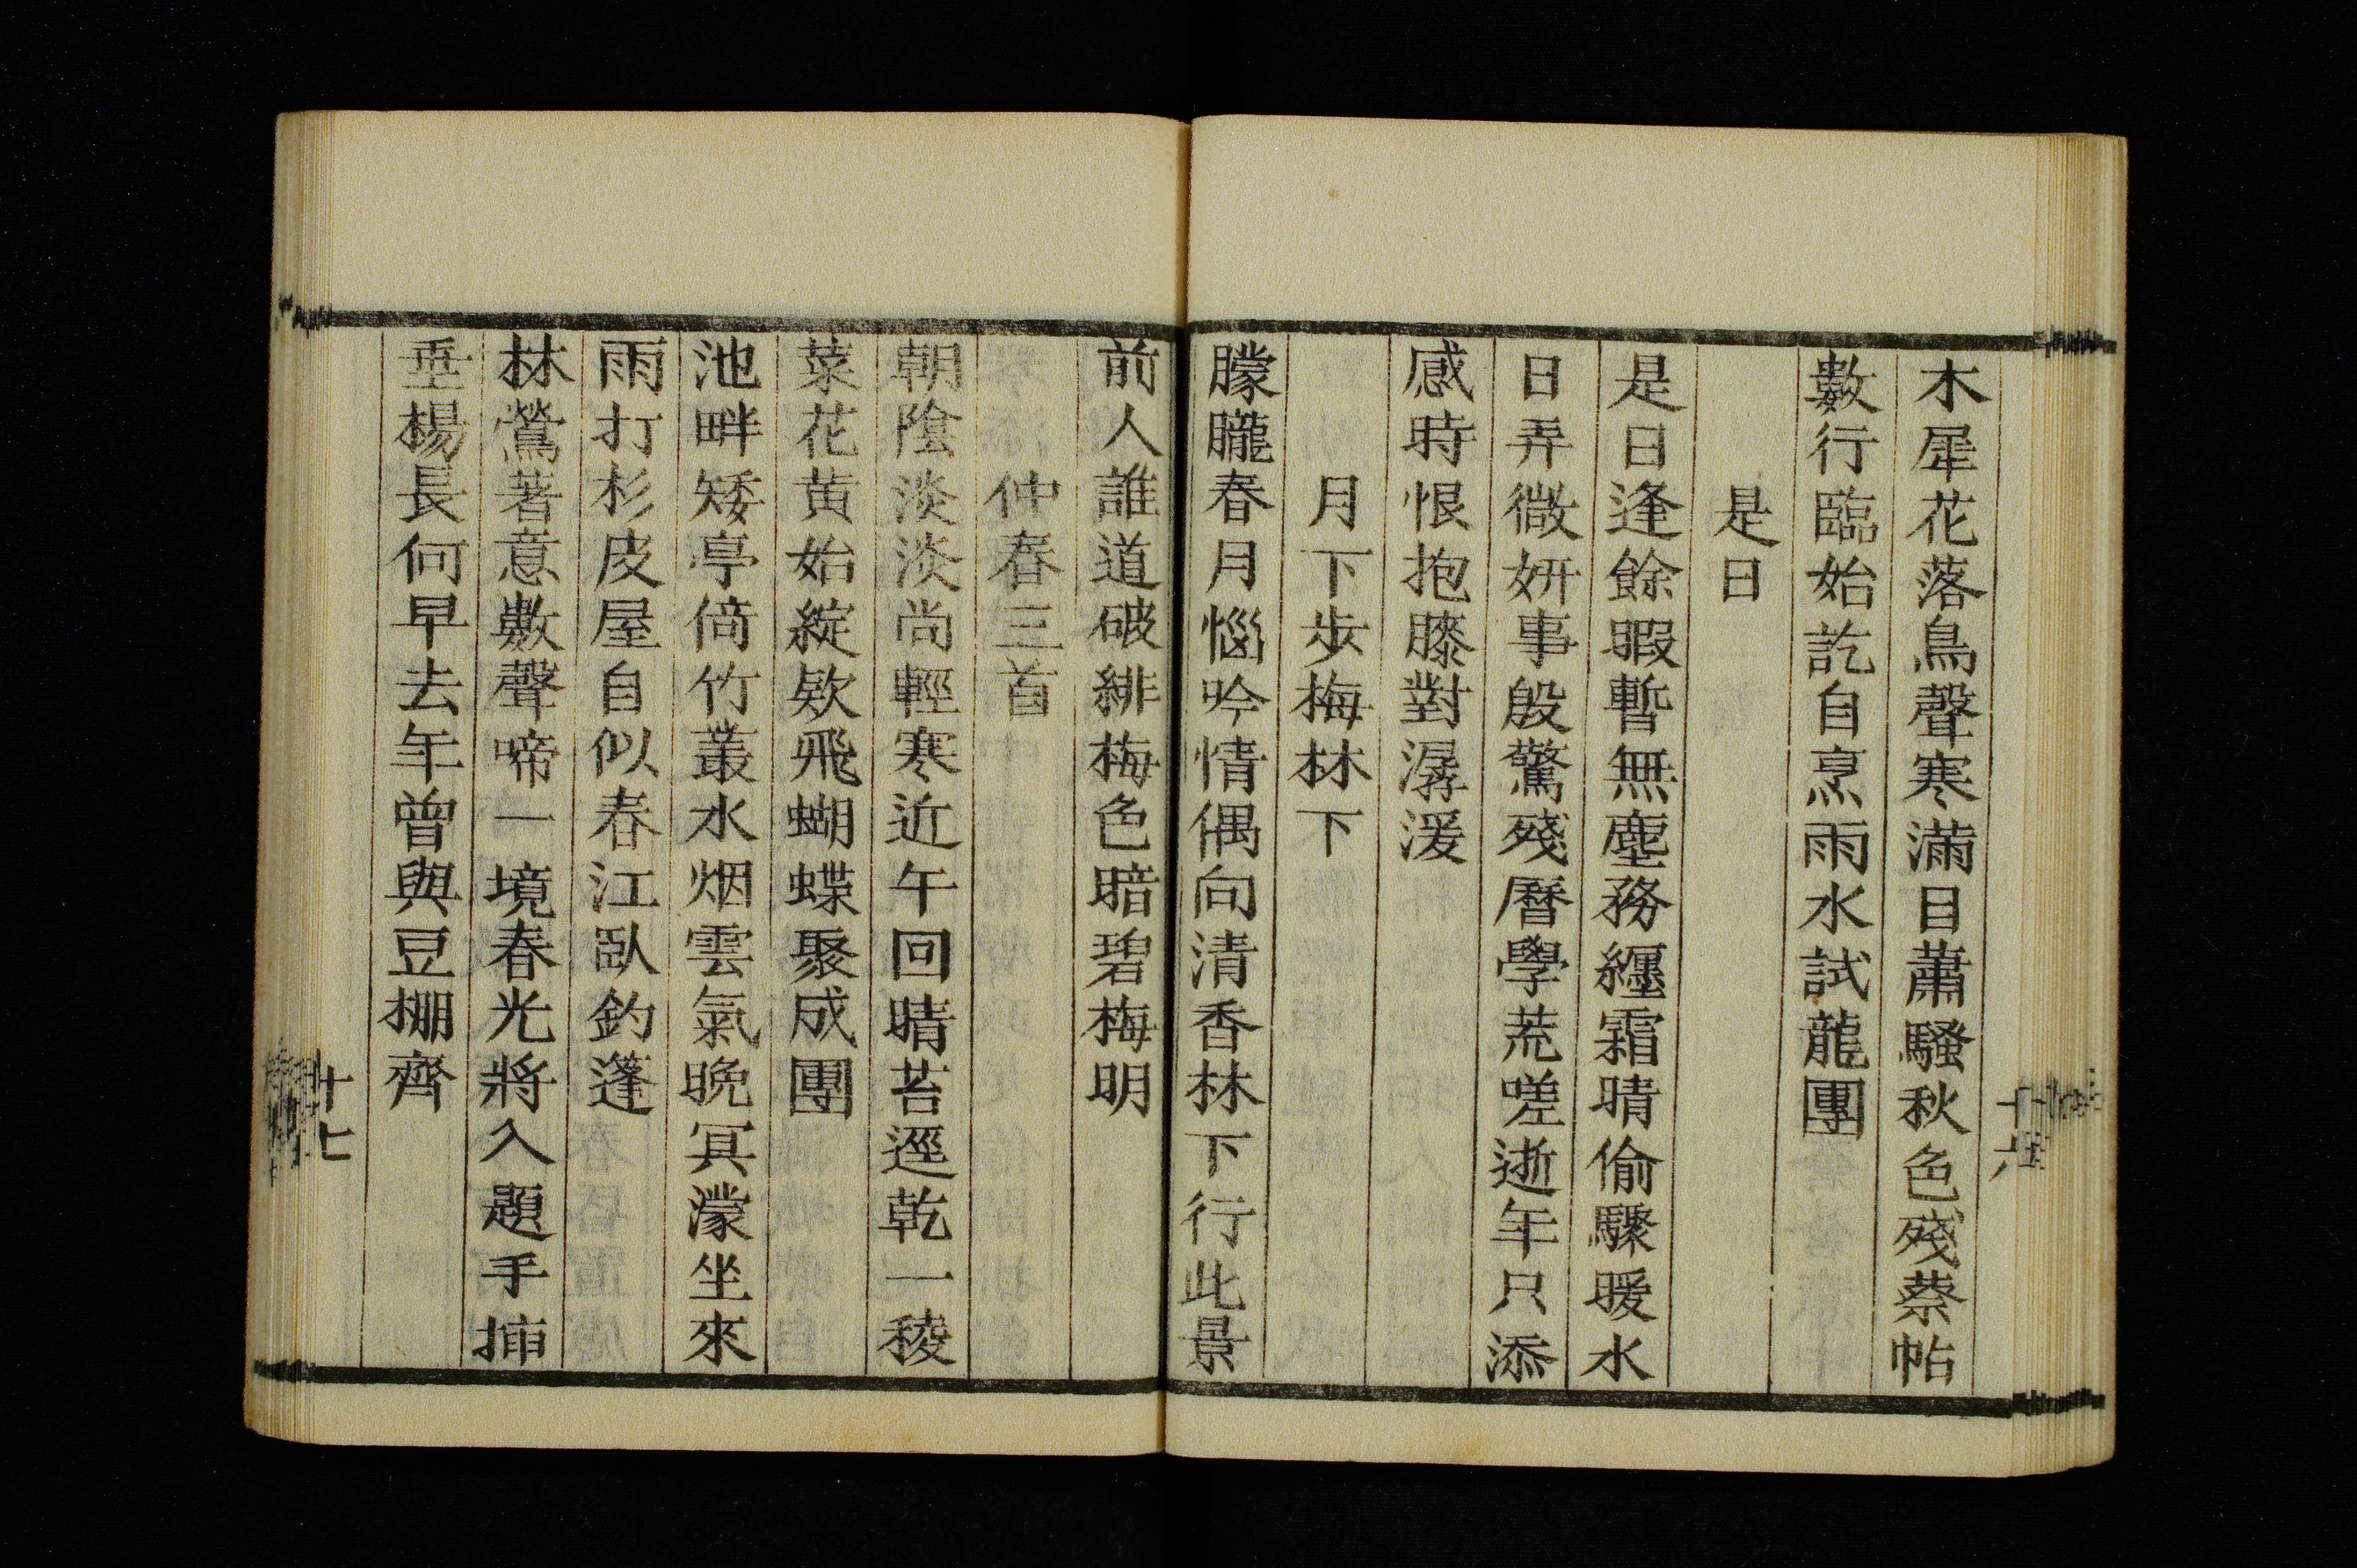 木犀花落鳥聲寒滿目蕭騷秋色殘蔡帖
數行臨始訖自烹雨水試龍團
是日
是日逢餘暇暫無塵務纏霜晴偷驟暖水
日弄微妍事殷驚殘曆學荒嗟逝年只添
感時恨抱膝對潺湲
月下步梅林下
朦朧春月惱吟情偶向清香林下行此景
前人誰道破緋梅色暗碧梅明
仲春三首
朝陰淡淡尚輕寒近午回晴苔逕乾一稜
菜花黃始綻欵飛蝴蝶聚成團
池畔矮亭倚竹叢水烟雲氣晚冥濛坐來
雨打杉皮屋自似春江臥釣篷
林鶯著意數聲啼一境春光將入題手插
垂楊長何早去年曾與豆棚齊
十六
十七